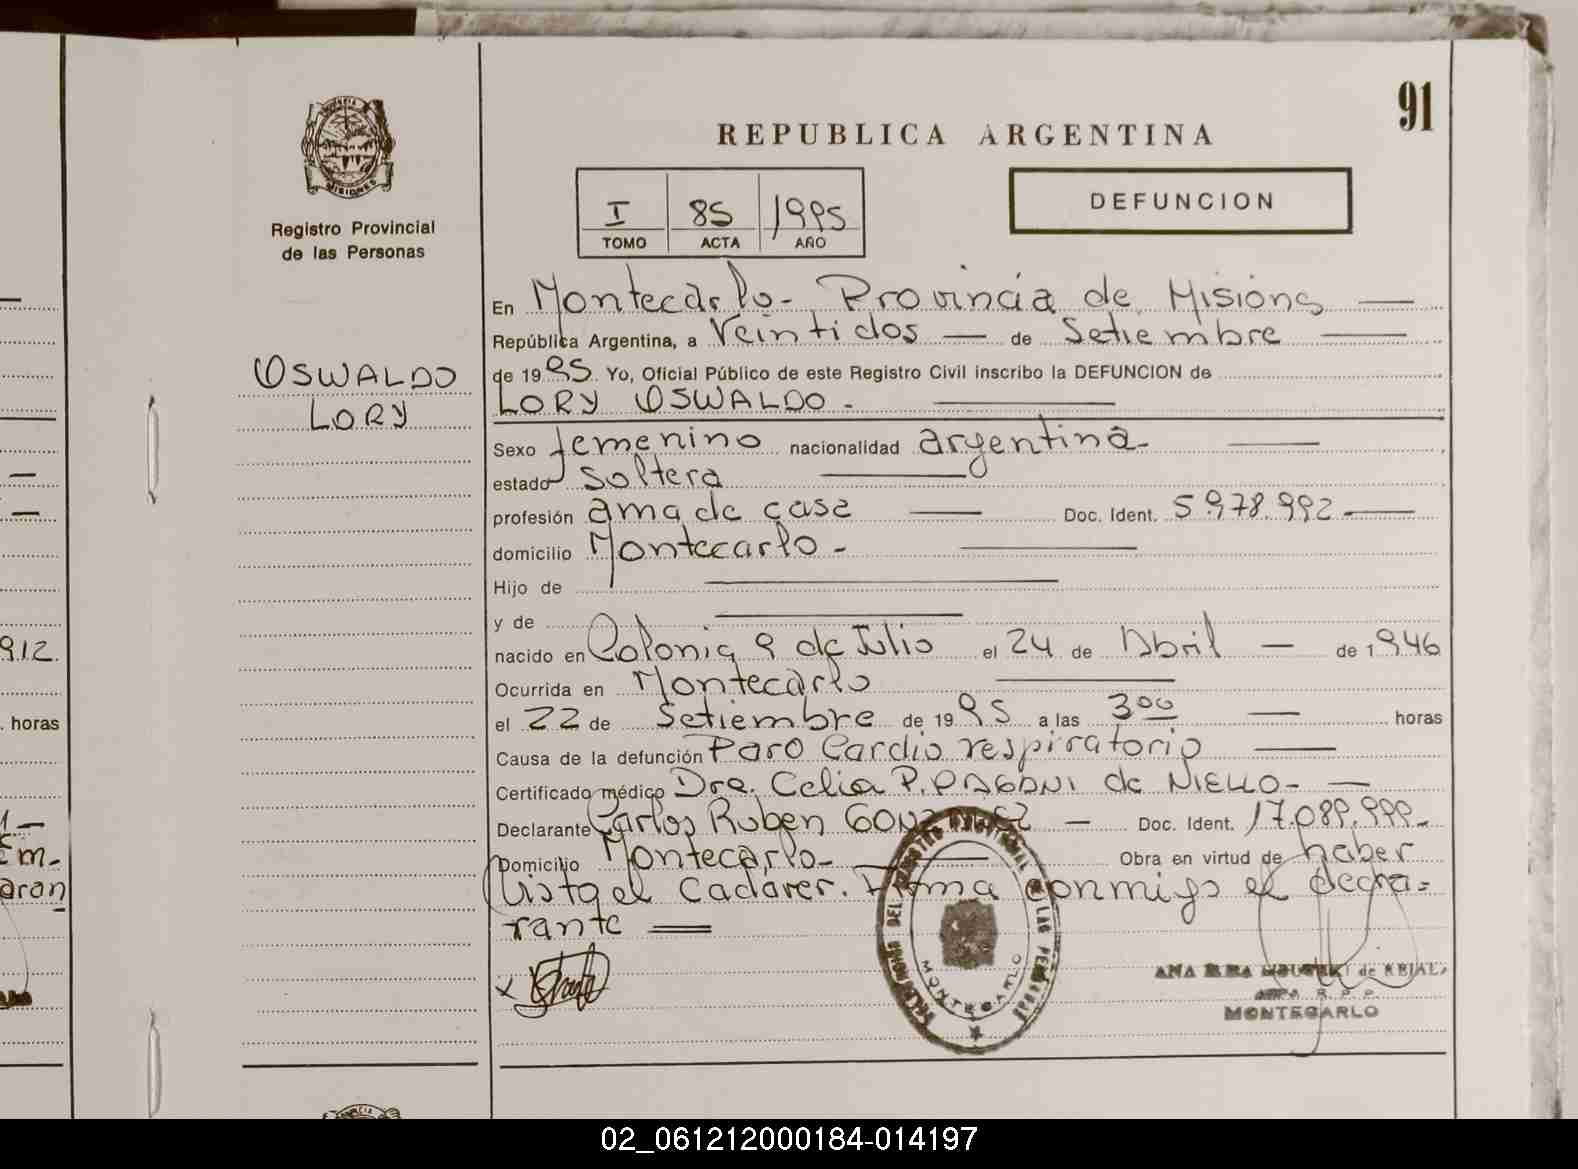 91
REPUBLICA ARGENTINA
PROVINCIA
MISIONES
Registro Provincial
de las Personas
I 85 1995
TOMO ACTA AÑO
DEFUNCION
OSWALDO
LORY
En Montecarlo - Provincia de Misions
República Argentina, a Veintidos de Setiembre
de 1995. Yo, Oficial Público de este Registro Civil inscribo la DEFUNCION de
LORY OSWALDO -
Sexo femenino nacionalidad argentina -
estado soltera
profesión ama de casa Doc. Ident. 5.978.992
domicilio Montecarlo -
Hijo de
y de
nacido en Colonia 9 de Julio el 24 de Abril de 1946
Ocurrida en Montecarlo
el 22 de Setiembre de 1995 a las 3 00 horas
Causa de la defunción Paro Cardio respiratorio
Certificado médico Dra. Celia P. PAGANI de NIELLO -
Declarante Carlos Ruben Doc. Ident. 17.089.999 -
Domicilio Montecarlo - Obra en virtud de haber
Vista el Cadaver. Firma conmigo el decra=
rante
x
MONTECARLO
ANA
MONTECARLO
912
horas
1 -
Em-
aran
02_061212000184-014197